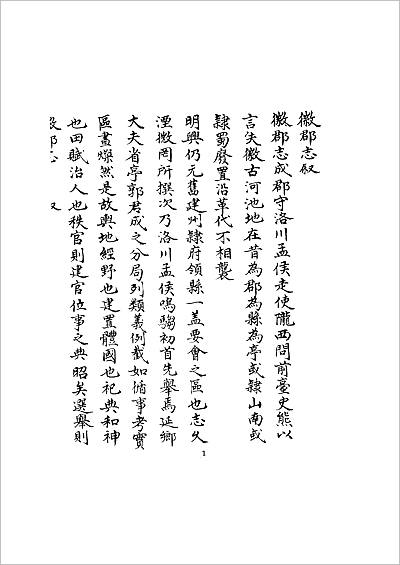 徽郡志叙
徽郡志成郡守洛川孟侯走使隴西問前臺史熊以
言夫徽古河池地在昔為郡為縣為亭或隸山南或
隸蜀廢置沿革代不相襲
明興仍元舊建州隸府領縣一盖要會之區也志久
湮微罔所撰次乃洛川孟侯鳴騶初首先舉焉延鄉
大夫省亭郭君成之分局列類義例截如循事考實
區畫燦然是故輿地經野也建置體國也祀典和神
也田賦治人也秩官則建官位事之典昭矣選舉則
1